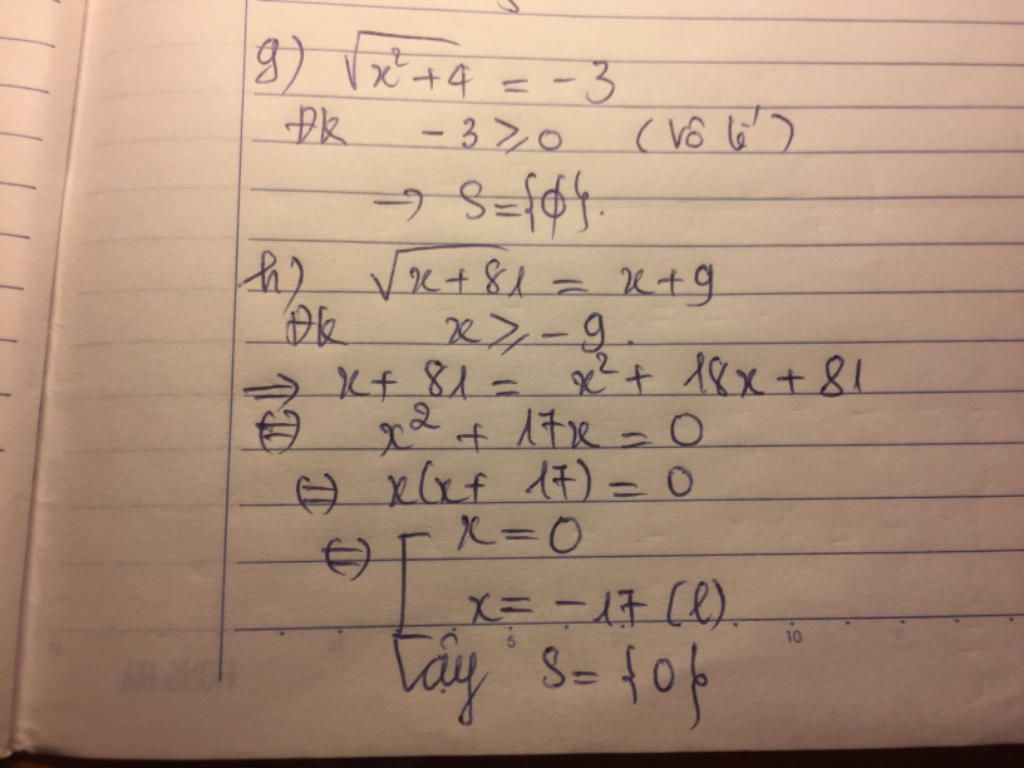 g) √(x²+4) = -3
Đk -3 ≥ 0 (Vô lí)
→ S={ϕ}.
h) √(x+81) = x+9
Đk x ≥ -9.
⇒ x+81 = x²+ 18x+81
⇔ x² + 17x = 0
⇔ x(x+ 17) = 0
⇔ [ x=0
x= -17 (l)
5 10
Vậy S= {0}